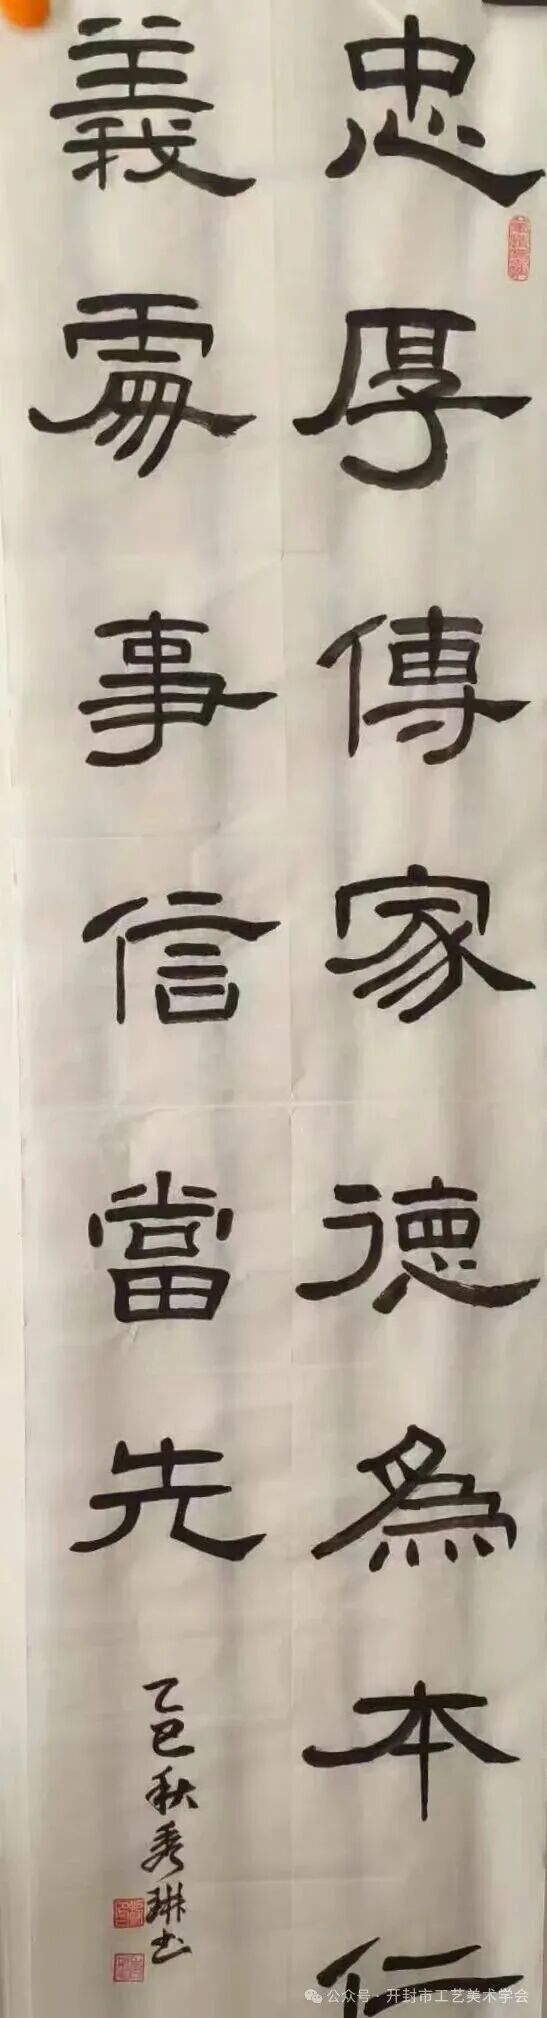 忠厚傳家德為本仁
義處事信當先
乙巳秋秀琳书
公众号·开封市工艺美术学会